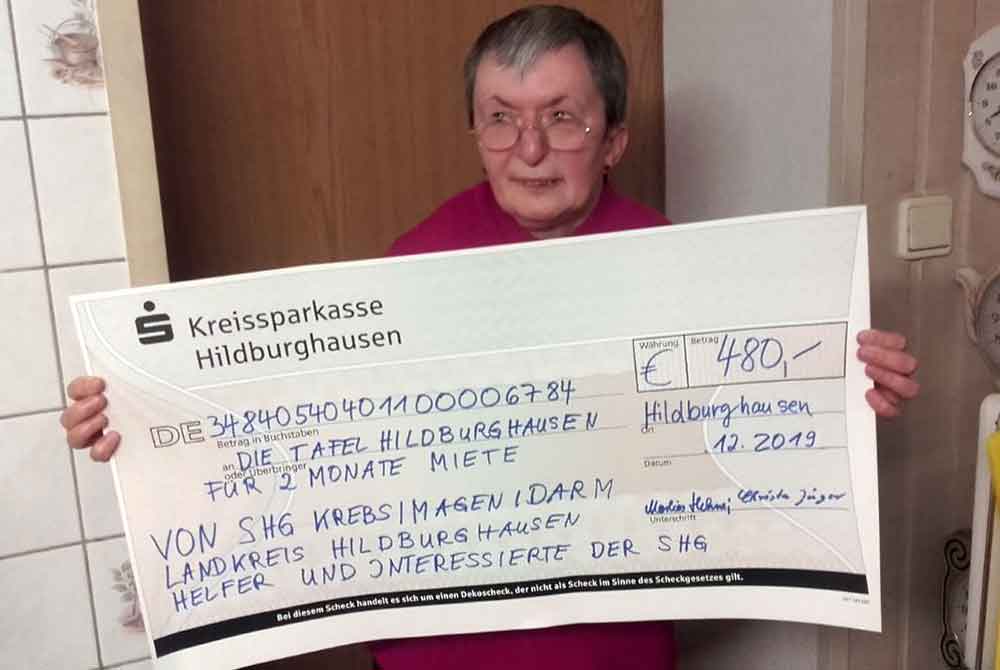 Kreissparkasse
Hildburghausen
Währung
€
Betrag
480,-
DE 34840540401100006784
Betrag in Buchstaben
an DIE TAFEL HILDBURGHAUSEN
oder Überbringer
FÜR 2 MONATE MIETE
Hildburghausen
Ort
12.2019
Datum
VON SHG KREBS/MAGEN/DARM
LANDKREIS HILDBURGHAUSEN
HELFER UND INTERESSIERTE DER SHG
Christa Jäger
Unterschrift
Bei diesem Scheck handelt es sich um einen Dekoscheck, der nicht als Scheck im Sinne des Scheckgesetzes gilt.